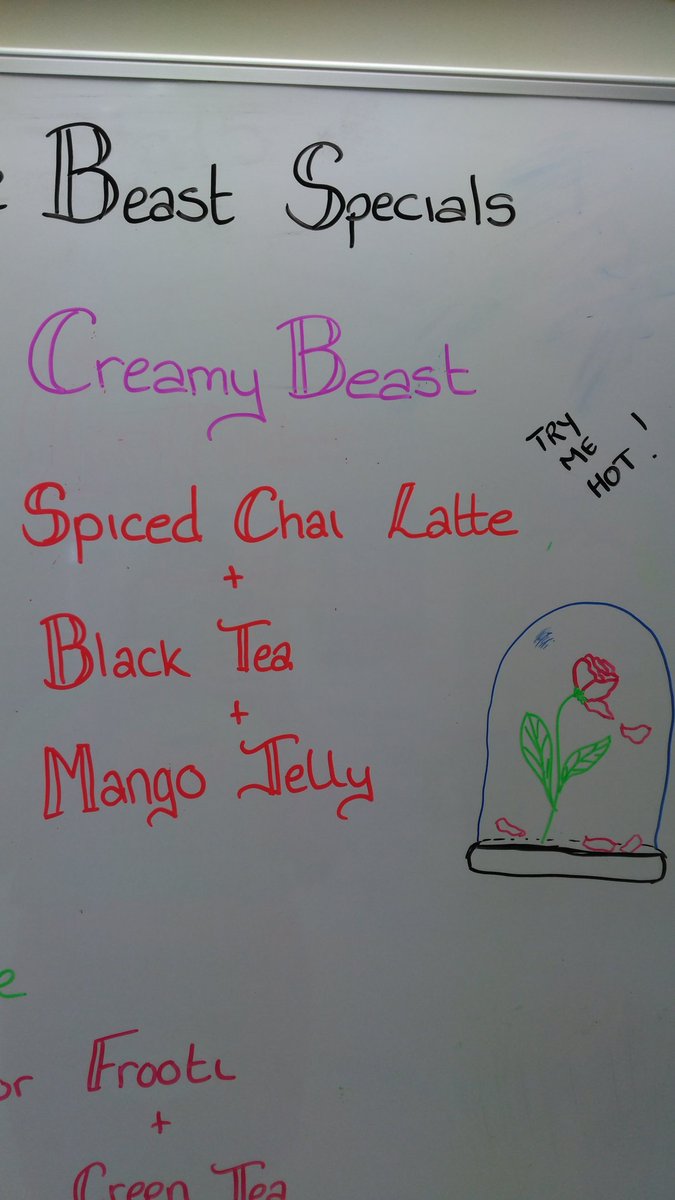 Beast Specials
Creamy Beast
TRY
ME
HOT!
Spiced Chai Latte
+
Black Tea
+
Mango Jelly
e
or Frooti
+
Green Tea